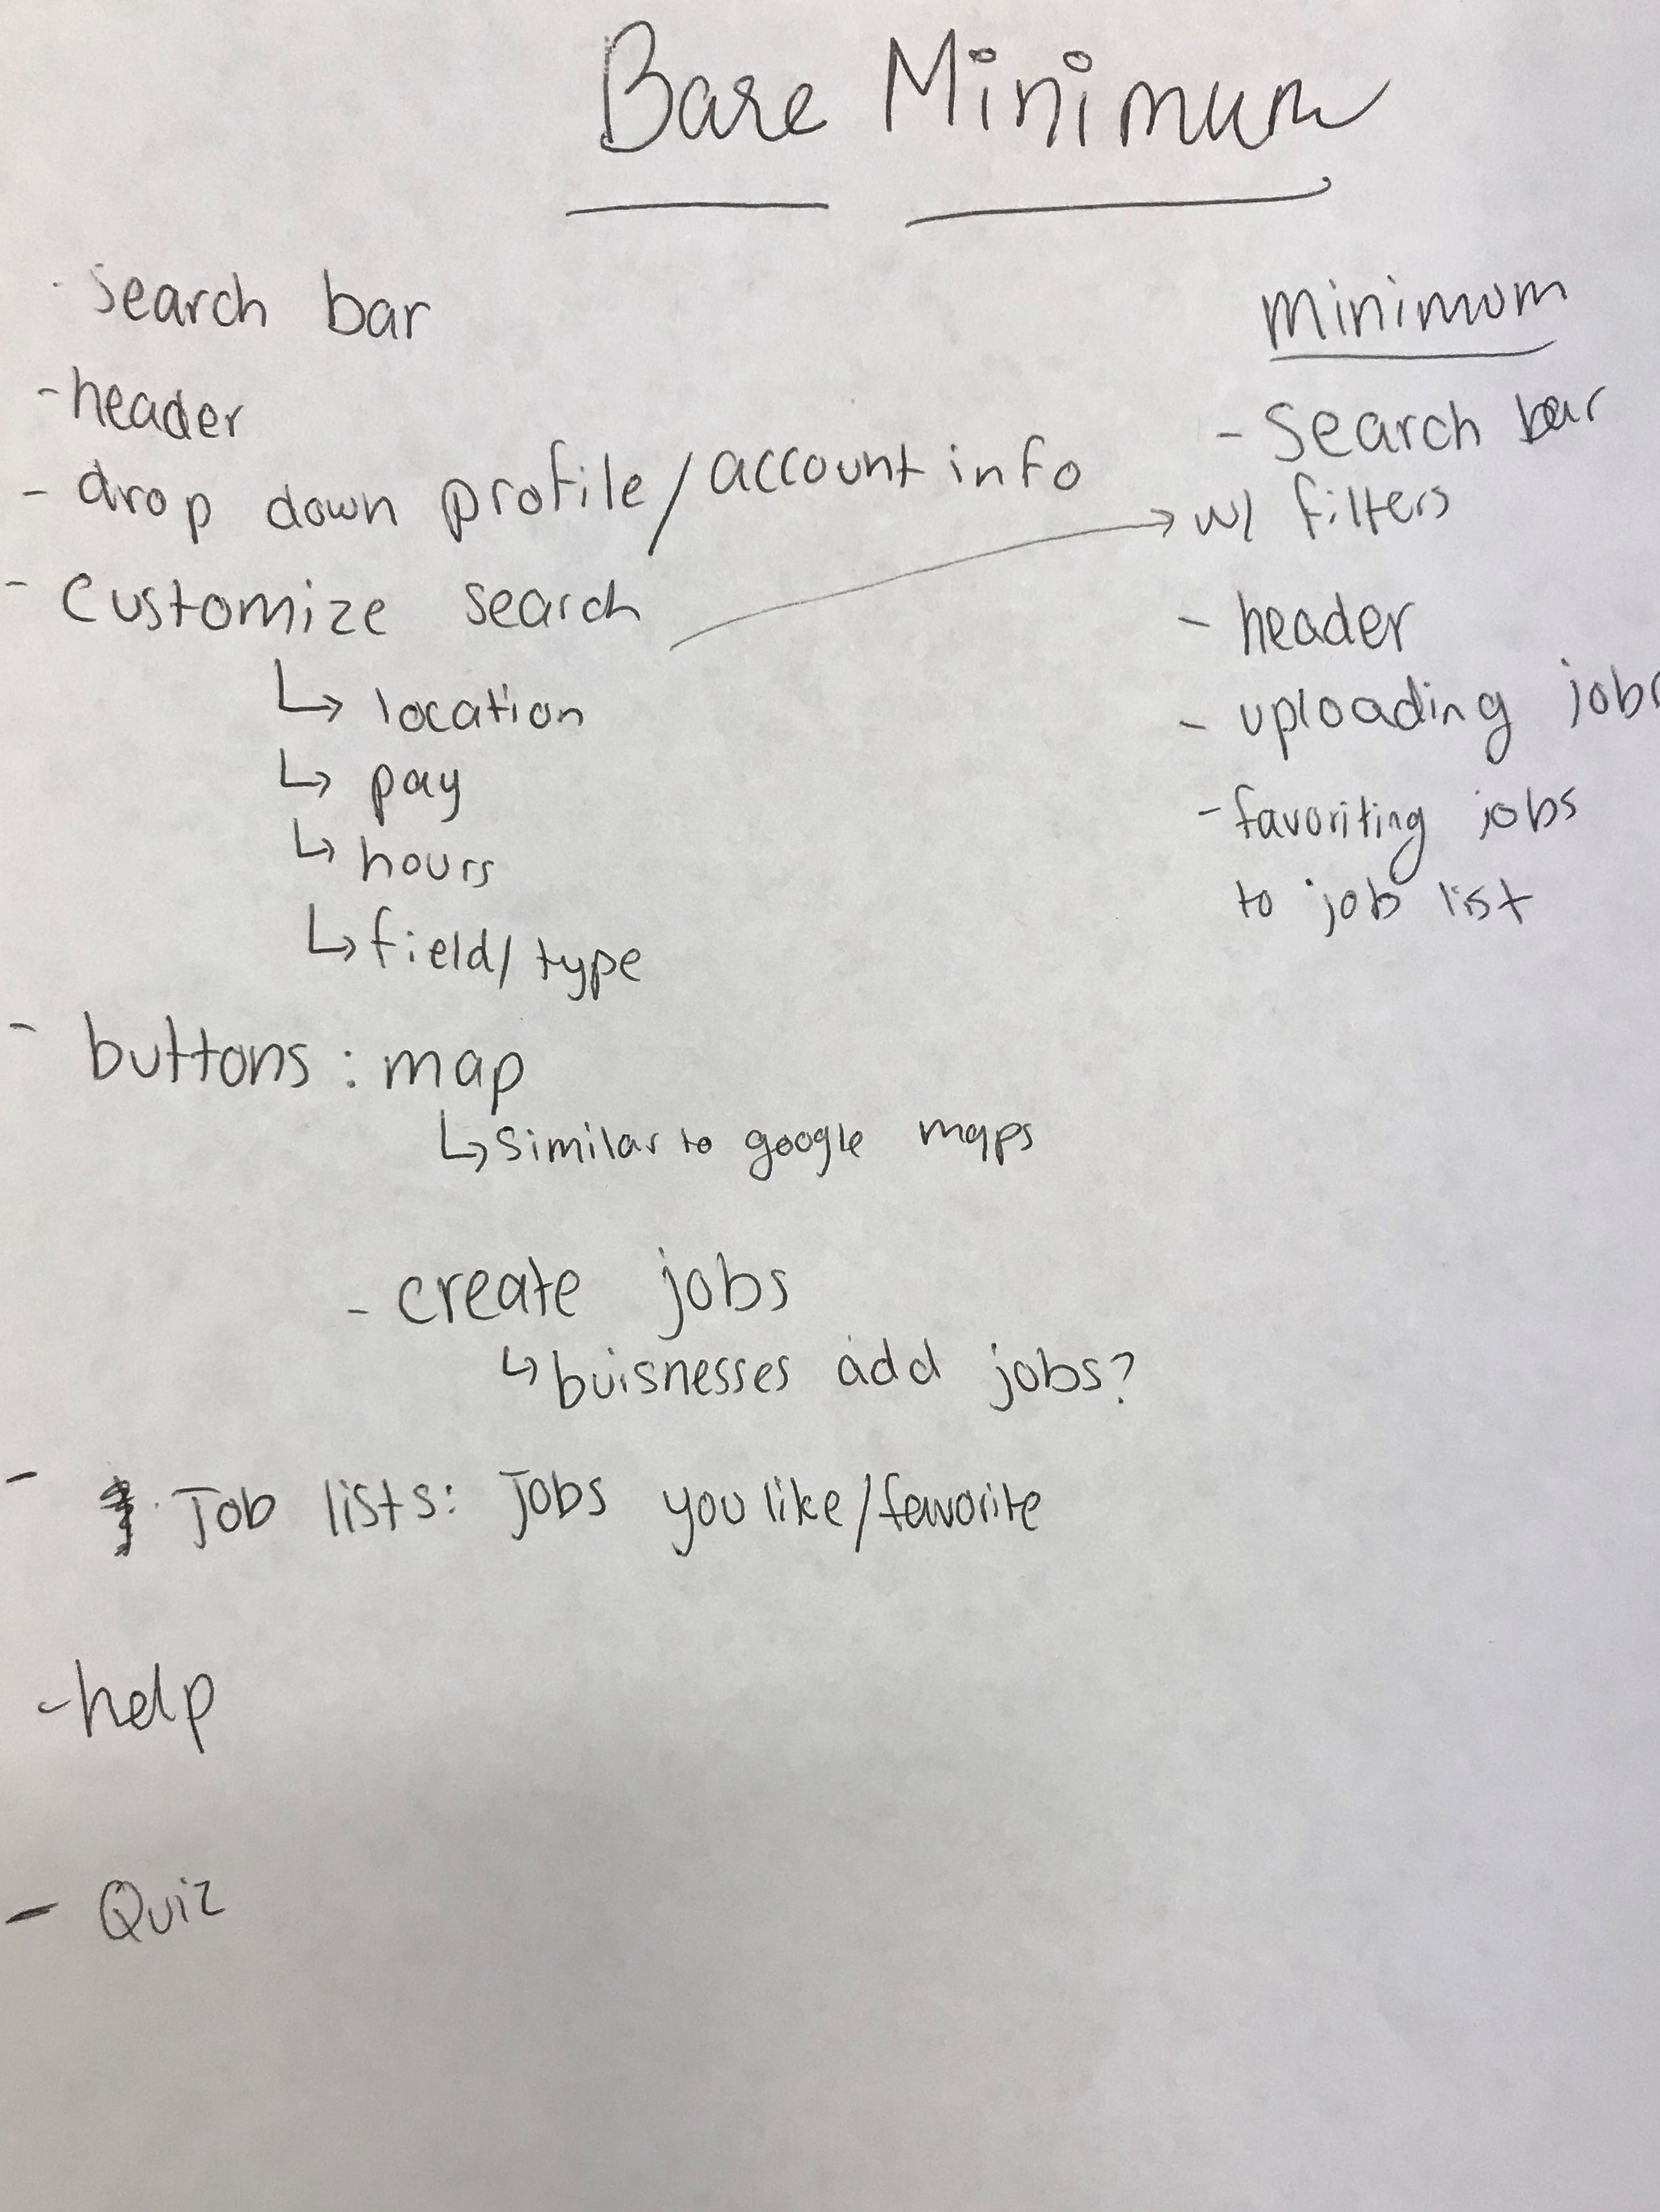 Bare Minimum
- search bar
- header
- drop down profile/account info
- customize search
↳ location
↳ pay
↳ hours
↳ field/type
- buttons: map
↳ similar to google maps
- create jobs
↳ buisnesses add jobs?
- Job lists: Jobs you like/favorite
- help
- Quiz
minimum
- Search bar
→ w/ filters
- header
- uploading jobs
- favoriting jobs
to job list